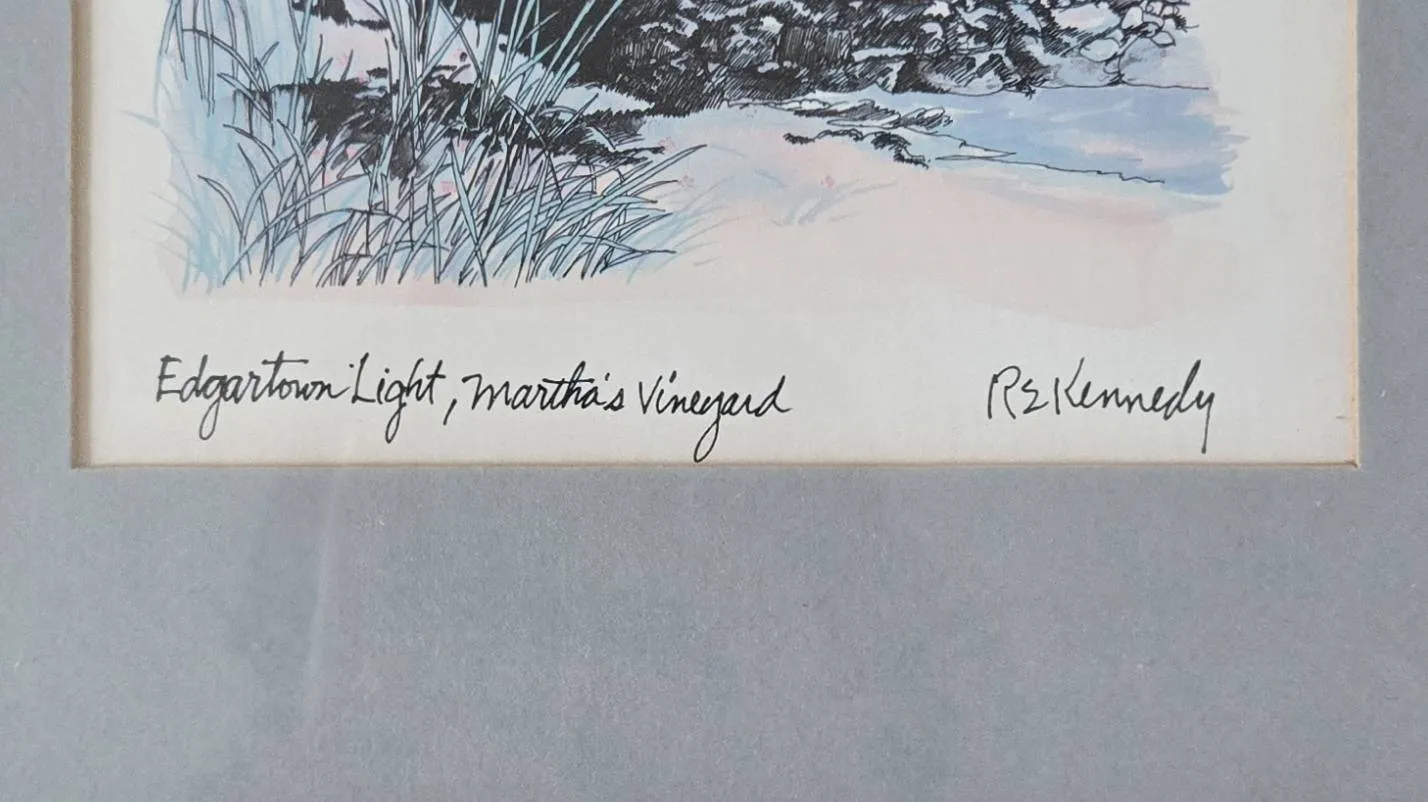 Edgartown Light, Martha's Vineyard
RE Kennedy